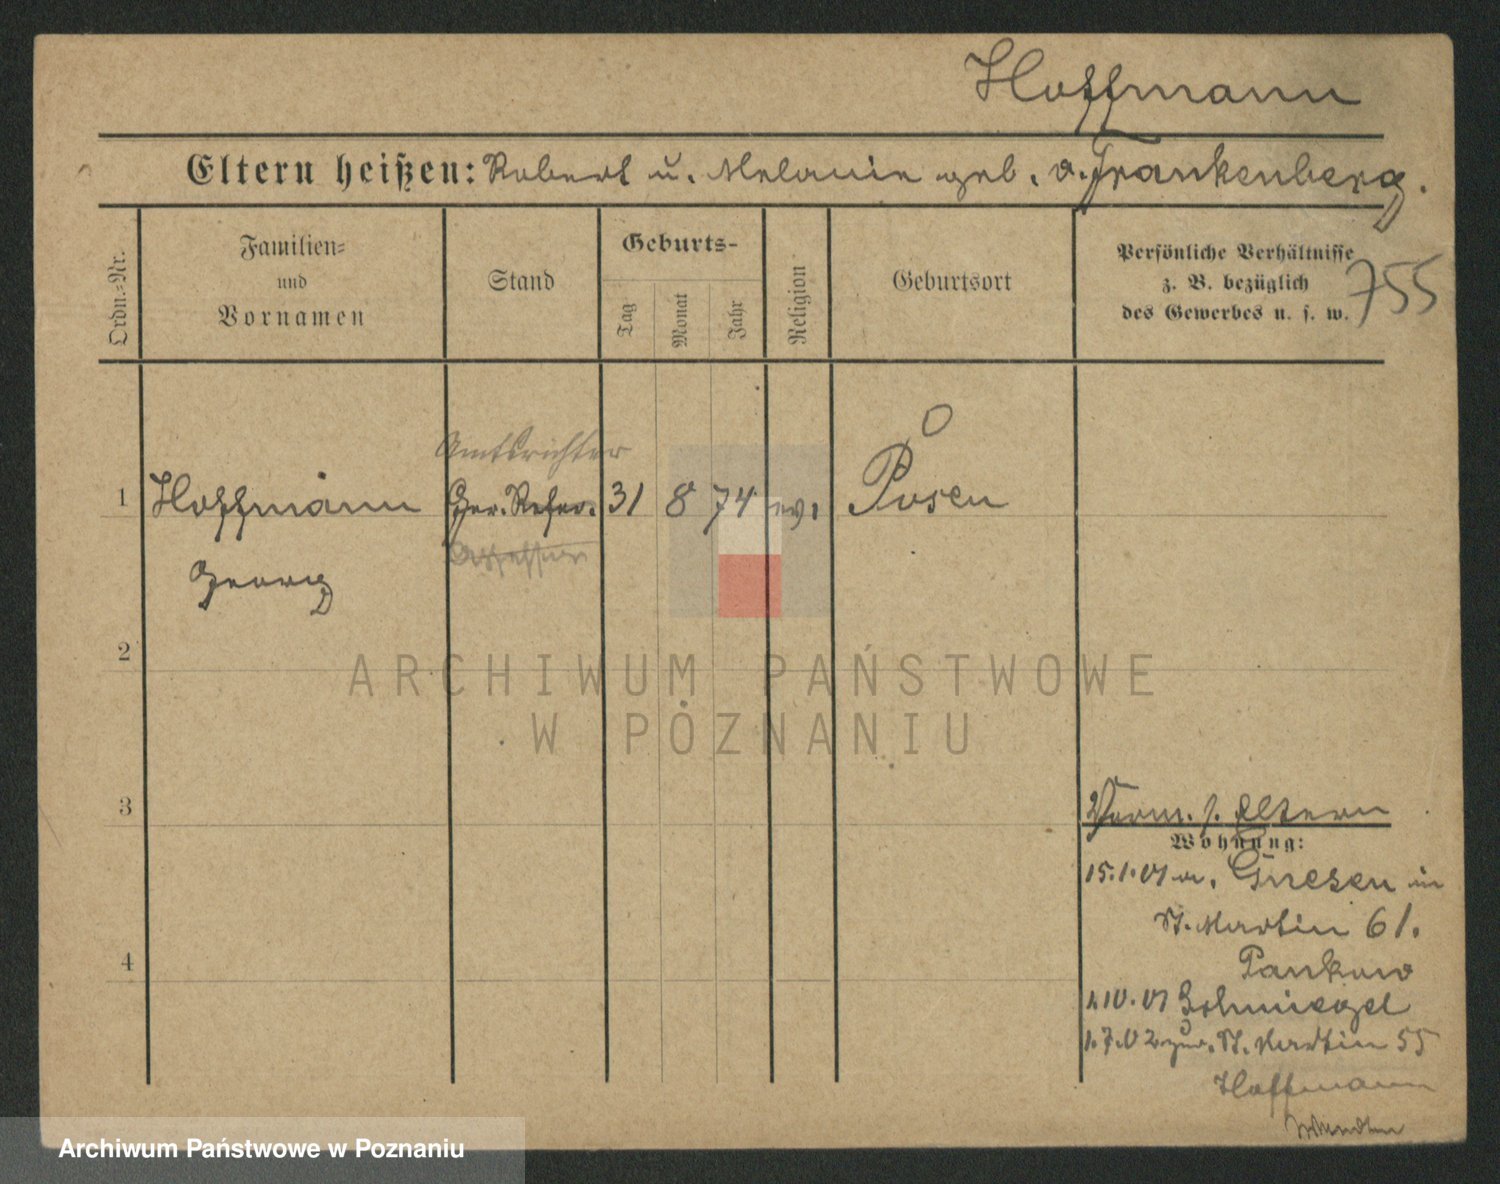 Hoffmann
Eltern heißen: Robert u. Melanie geb. v. Frankenberg.
Ordn.-Nr.
Familien-
und
Vornamen
Stand
Geburts-
Tag
Monat
Jahr
Religion
Geburtsort
Persönliche Verhältnisse
z. B. bezüglich
des Gewerbes u. s. w.
755
Amtsrichter
1 Hoffmann Ger. Refer. 31 8 74 ev. Posen
Assessor
Georg
2
ARCHIWUM PAŃSTWOWE
W POZNANIU
3
Verm. s. Eltern
Wohnung:
15.1.01 v. Gnesen in
St. Martin 61.
4
Pankow
1.10.01 Schmiegel
1.7.02 zur. St. Martin 55
Hoffmann
Archiwum Państwowe w Poznaniu